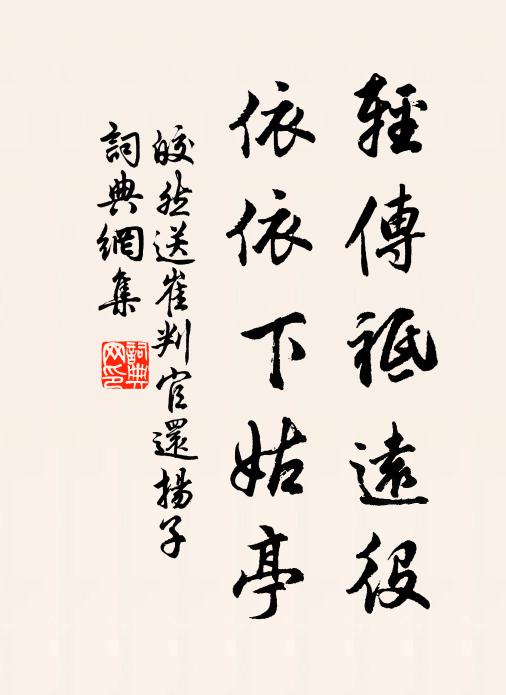 輕傳祗遠役
依依下姑亭
皎然送崔判官還揚子
詞典網集
詞典
网印